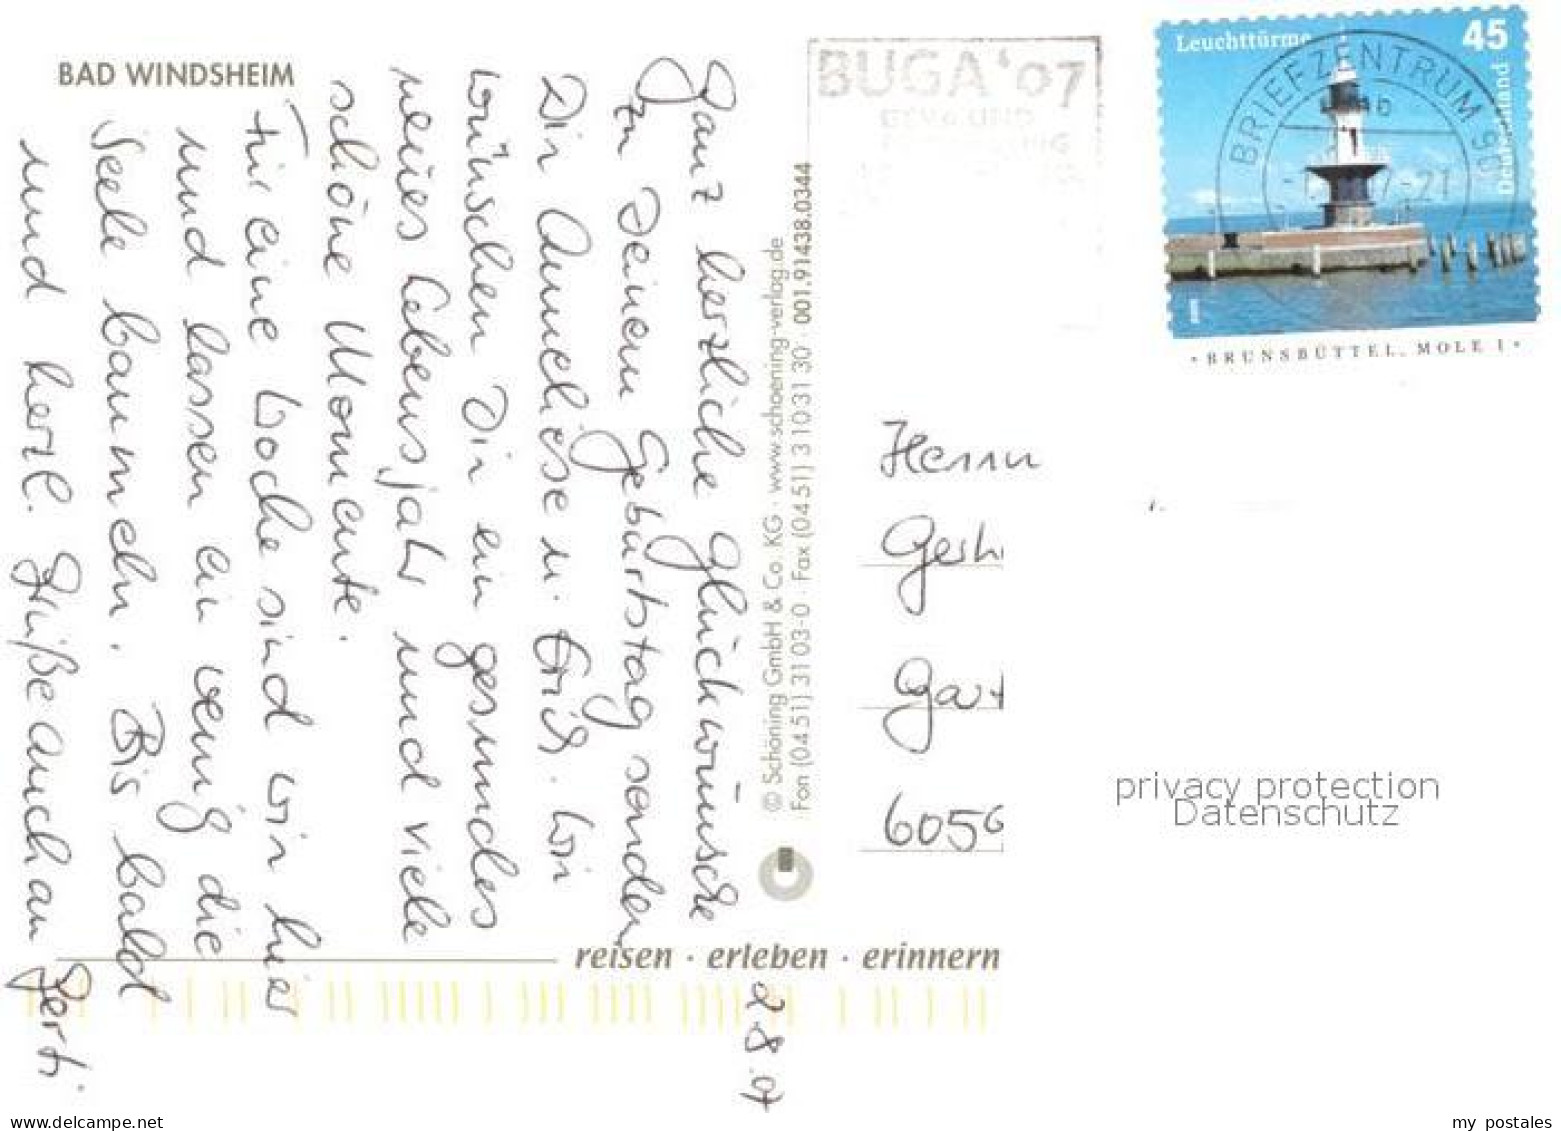 BAD WINDSHEIM
2.8.07
Ganz herzliche Glückwünsche
zu Deinem Geburtstag senden
Dir Anneliese u. Erich. Wir
wünschen Dir ein gesundes
neues Lebensjahr und viele
schöne Momente.
Für eine Woche sind wir hier
und lassen ein wenig die
Seele baumeln. Bis bald
und herzl. Grüße auch an
Gerti.
© Schöning GmbH & Co. KG · www.schoening-verlag.de
Fon (0451) 31 03-0 · Fax (0451) 3 10 31 30 · 001.91438.0344
reisen · erleben · erinnern
BUGA '07
GERA UND
Leuchttürme
45
Deutschland
BRIEFZENTRUM 96
I
• BRUNSBÜTTEL, MOLE I •
Herrn
Gerh
Gart
6056
privacy protection
Datenschutz
www.delcampe.net
my_postales